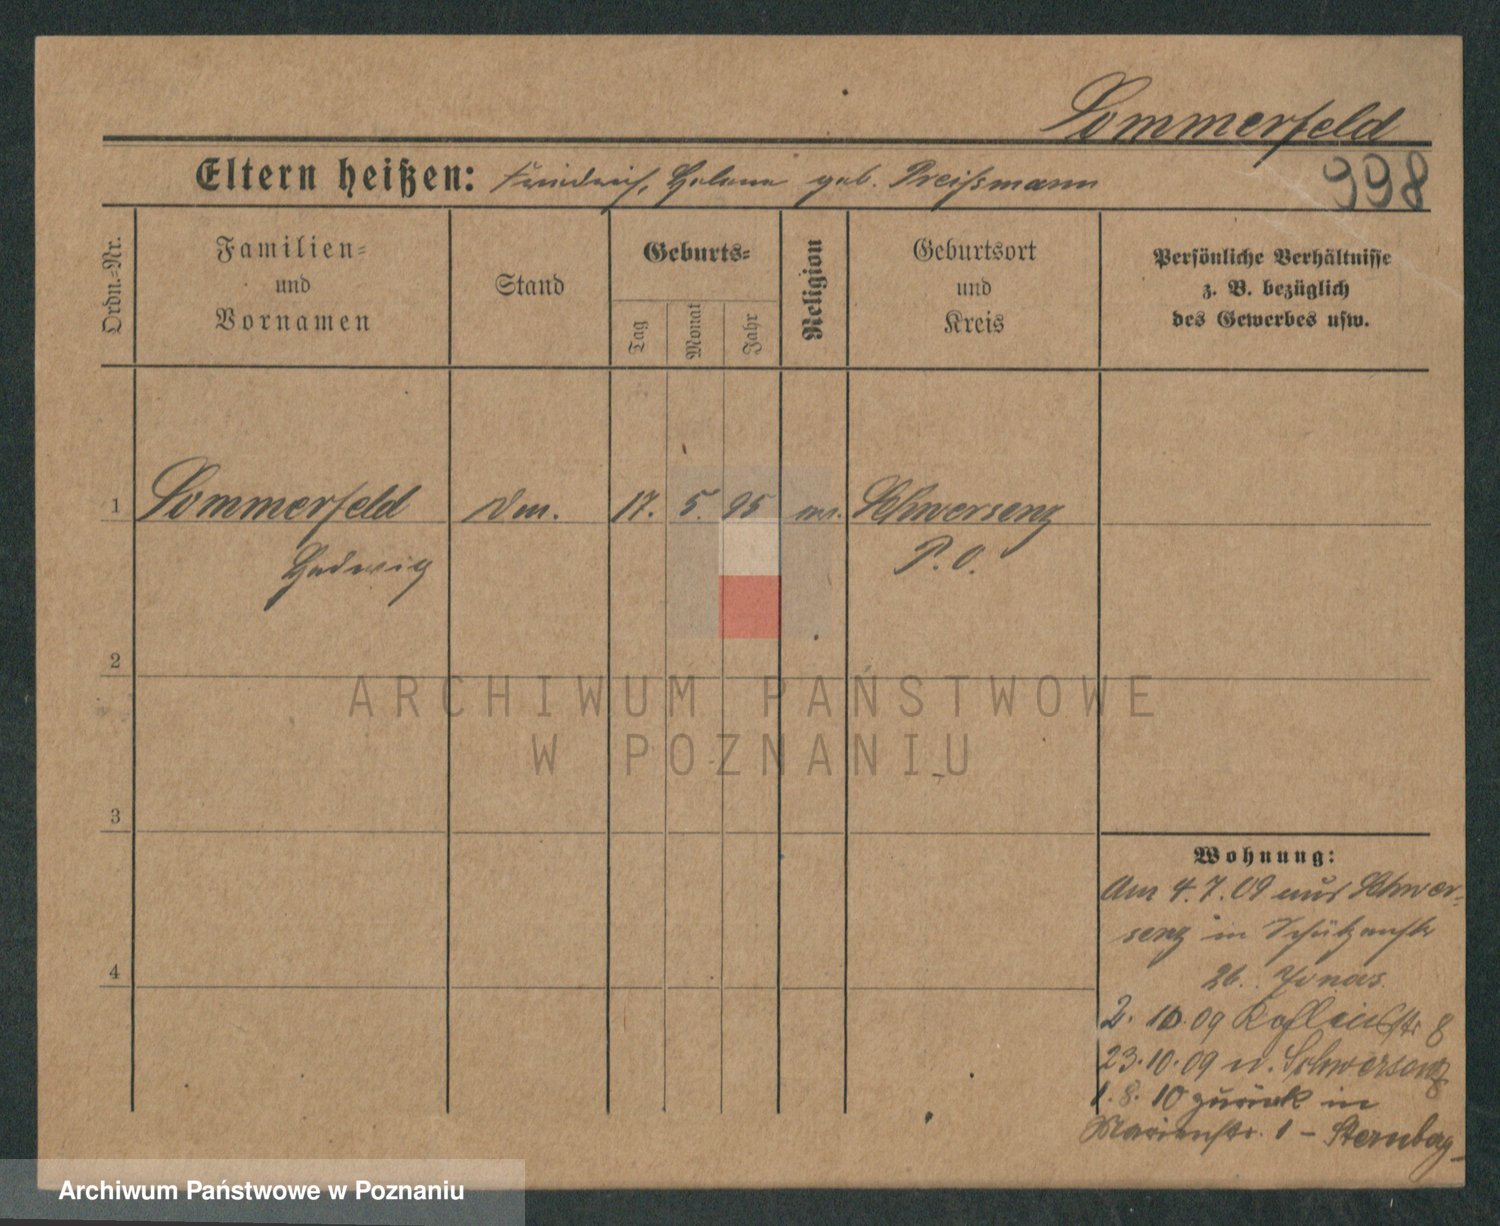 Sommerfeld
998
Eltern heißen: Friedrich, Helene geb. Preißmann
Ordn.-Nr.
Familien-
und
Vornamen
Stand
Geburts-
Tag
Monat
Jahr
Religion
Geburtsort
und
Kreis
Persönliche Verhältnisse
z. B. bezüglich
des Gewerbes usw.
1 Sommerfeld 17. 5. 95 Schwersenz
Hedwig P. O.
2
3
4
Wohnung:
Am 4.7.09 aus Schwer-
senz in Schützenstr
26. Jonas
2. 10. 09 8
23.10.09 n. Schwersenz
1. 8. 10 zurück in
Marienstr. 1 – Sternberg
ARCHIWUM PAŃSTWOWE
W POZNANIU
Archiwum Państwowe w Poznaniu